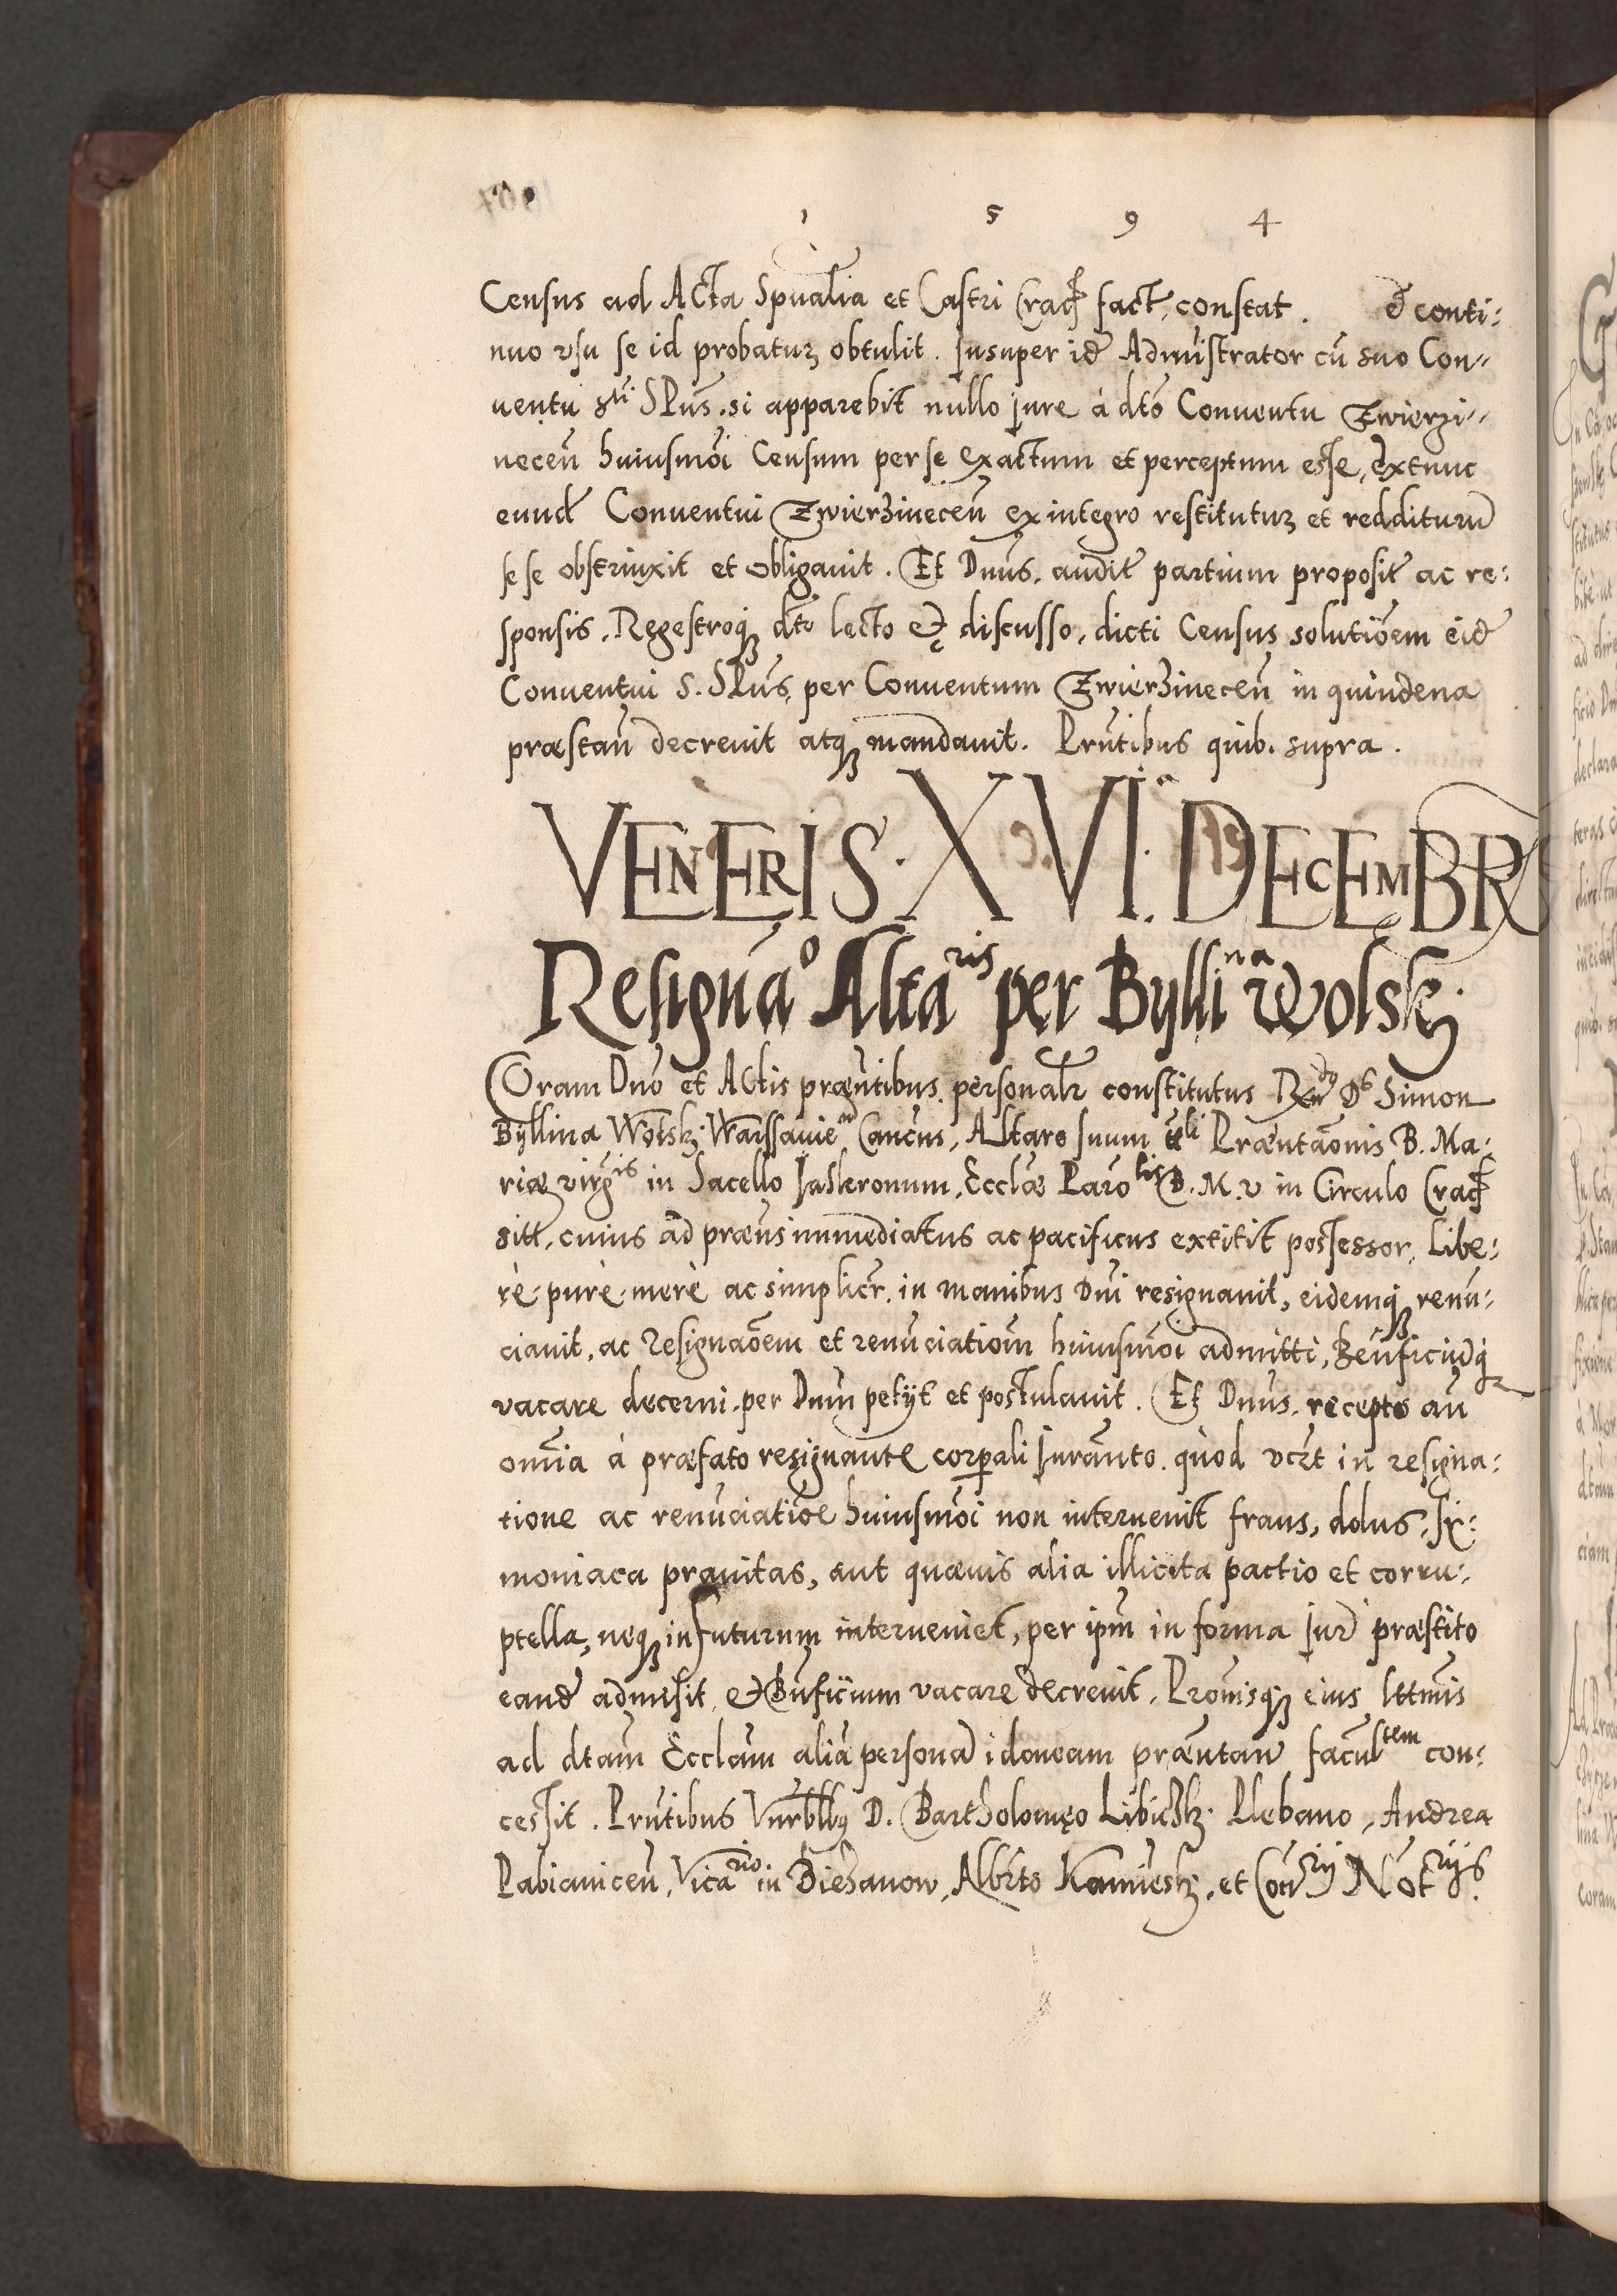 1 5 9 4
Census ad Acta Spualia et Castri Crac fact, constat. et conti:
nuo vsu se id probatur obtulit. Insuper ide Admistrator cū suo Con-
uentu sti SPus. si apparebit nullo jure à dto Conuentu Zwierzi-
necen huiusmoi Censum per se exactum et perceptum esse, extunc
eund Conuentui Zwierzinecen ex integro restitutur et redditurū
sese obstrinxit et obligauit. Et Dnus. audit partium proposit ac re:
sponsis, Regestroq dto lecto et discusso, dicti Census solutioem eid
Conuentui S. SPus, per Conuentum Zwierzinecen in quindena
præstan decreuit atq mandauit. Prntibus quib. supra.
VENERIS. XVI.a DECEMBR
Resignao Altaris per Byllina Wolsk.
Coram Dno et Actis præntibus personalr constitutus Rndg Ds Simon
Byllina Wolsk. Warssauien Cancus, Altare suum tli Præntaonis B. Ma:
riæ virgis in Sacello Jasleronum, Ecclæ Parolis B. M. V in Circulo Crac
sitt, cuius ad præns immediatus ac pacificus extitit possessor, Libe:
rè. purè. merè ac simplicr. in manibus Dni resignauit, eidemq renu:
ciauit, ac resignaoem et renuciatiom huiusmoi admitti, Benficiūq
vacare decerni. per Dnm petijt et postulauit. Et Dnus. recepto an
omnia à præfato resignante corpali Juranto. quod vcrt in resigna:
tione ac renuciatioe huiusmoi non interuenit fraus, dolus, sy:
moniaca prauitas, aut quæuis alia illicita pactio et corru:
ptella, neq in futurum interueniet, per ipm in forma Jur præstito
eand admisit, et Bnficium vacare decreuit. Pronisq eius lttmis
ad dtam Ecclam aliā personā idoneam præntan facultem con:
cessit. Prntibus Vnrblbg D. Bartholomęo Libick. Plebano, Andrea
Pabianicen, Vicario in Biezanow, Albrto Kamiensk, et Conrij Notrijs.